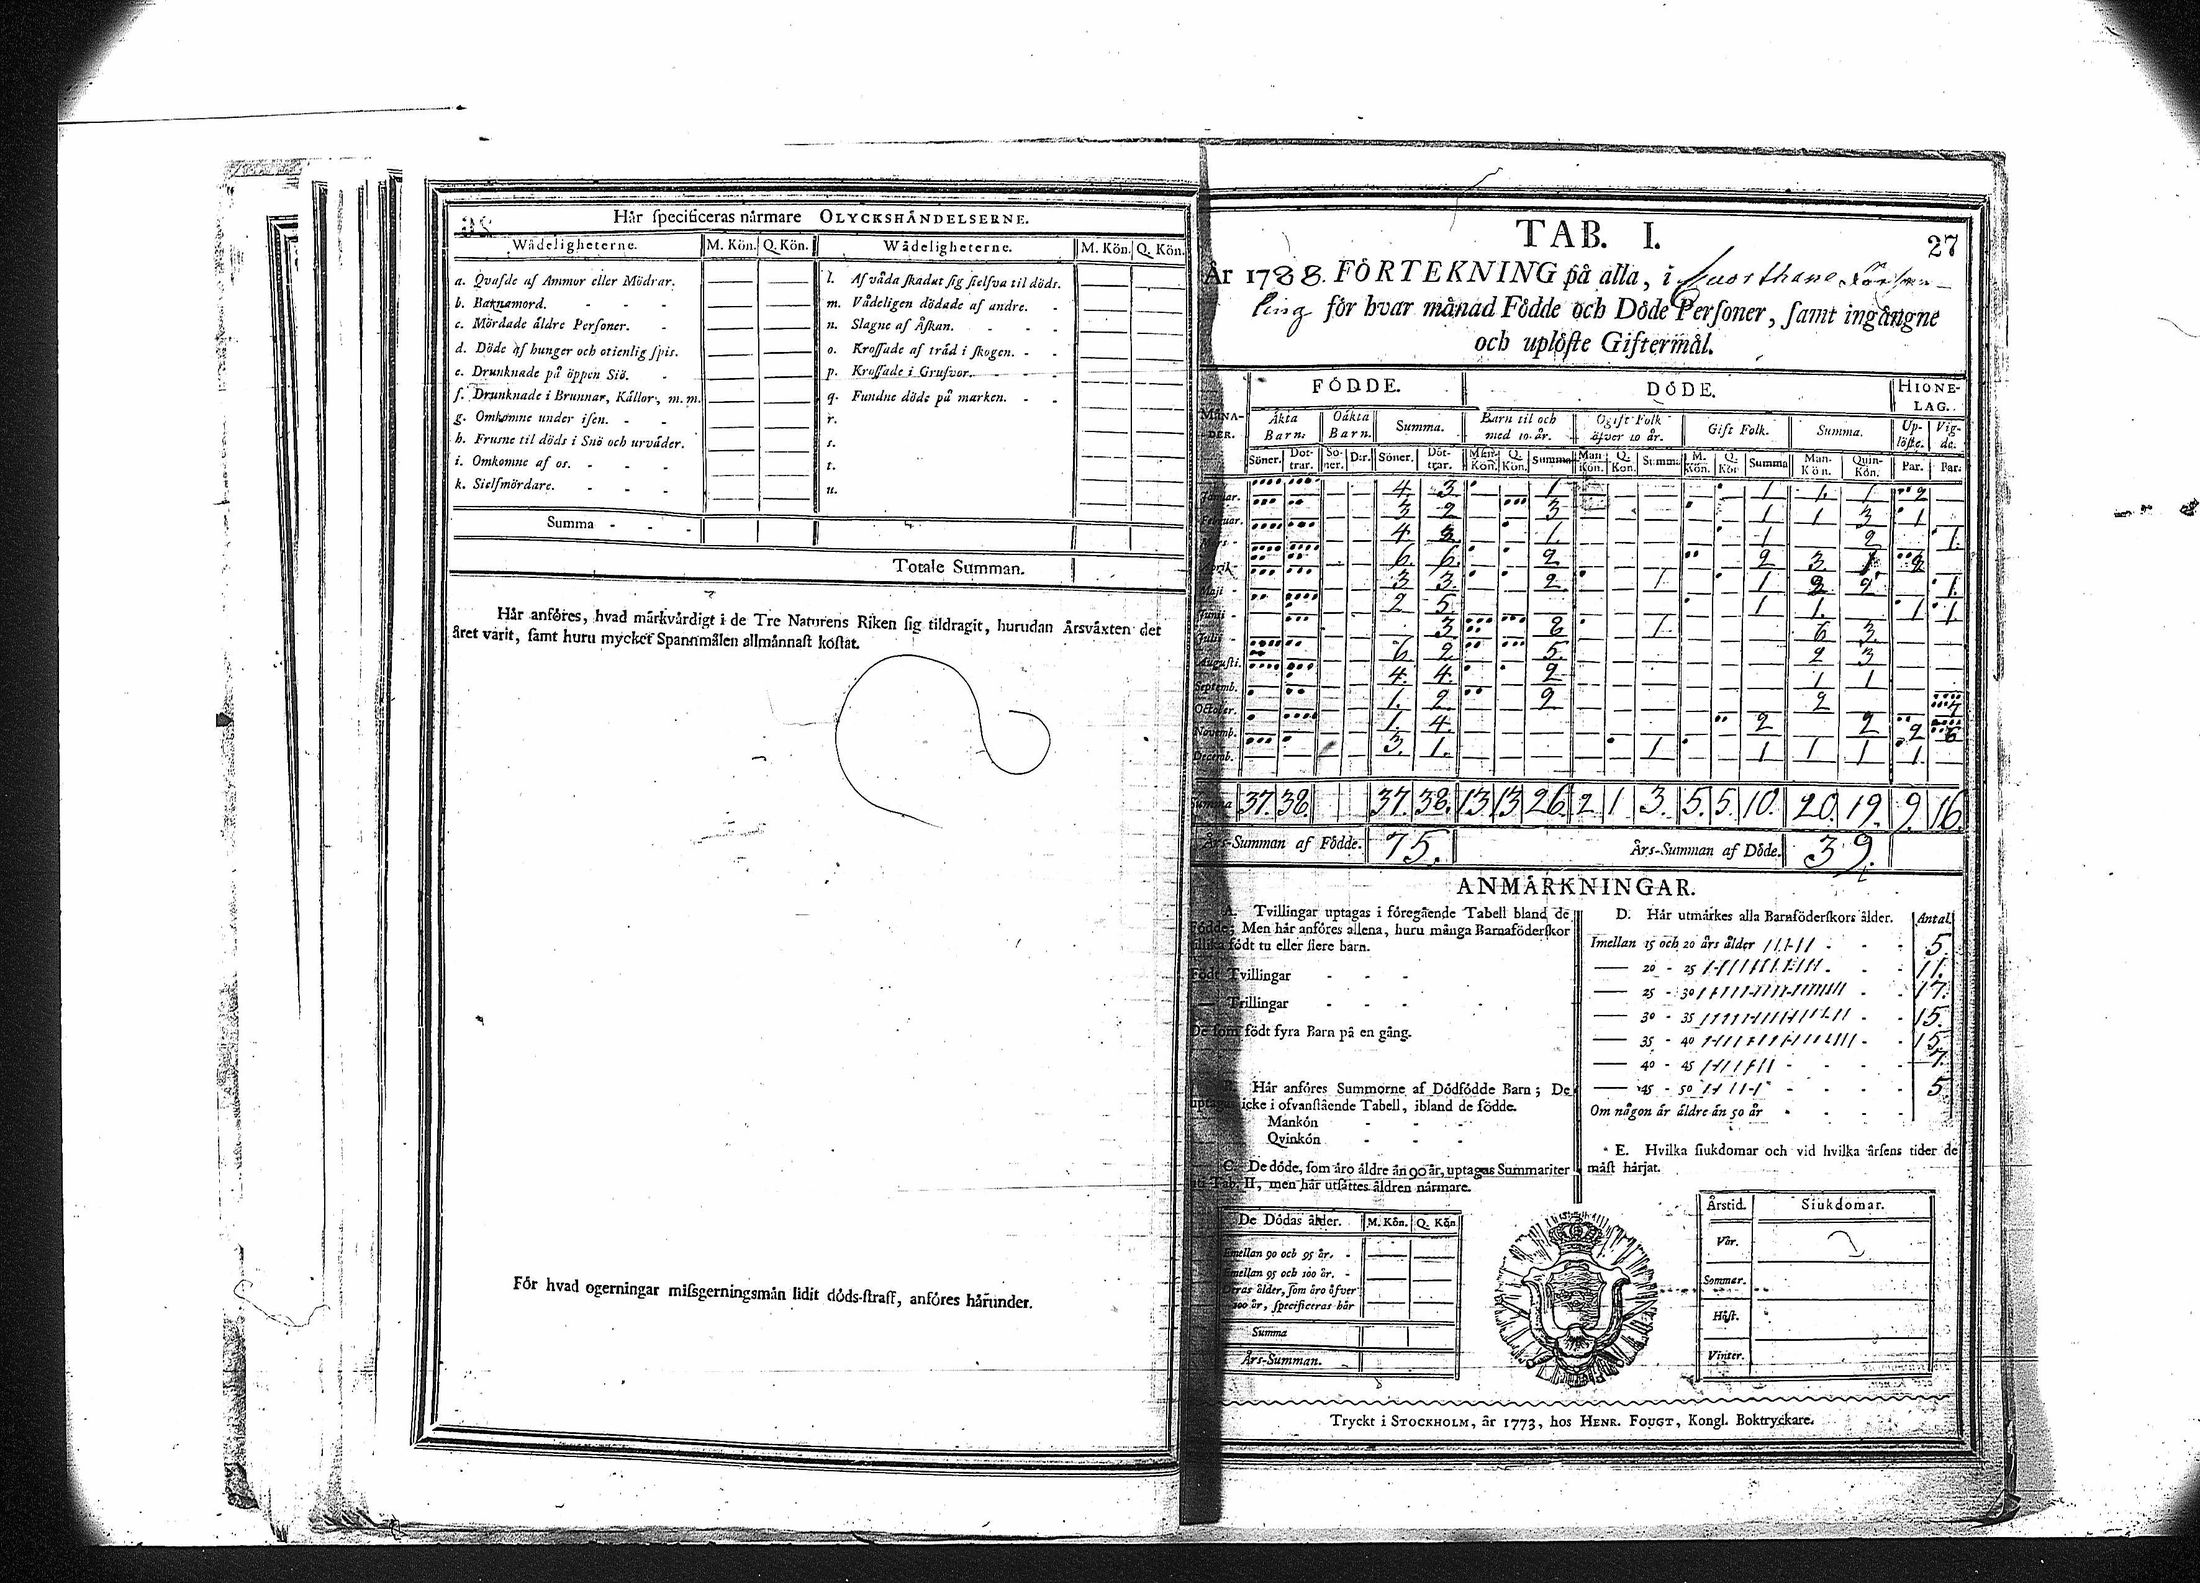 Hår ſpecificeras nårmare OLYCKSHÅNDELSERNE.
Wådeligheterne. M. Kön. Q. Kön. Wådeligheterne. M. Kön. Q. Kön.
a. Qvafde af Ammor eller Mödrar.
b. Barnamord. - - -
c. Mördade åldre Perſoner. -
d. Döde af hunger och otienlig ſpis.
e. Drunknade på öppen Siö. -
f. Drunknade i Brunnar, Kållor, m. m.
g. Omkomne under iſen. - -
h. Fruſne til döds i Snö och urvåder.
i. Omkomne af os. - - -
k. Sielfmördare. - - -
l. Af våda ſkadat ſig ſielfva til döds.
m. Vådeligen dödade af andre. -
n. Slagne af Åſkan. - - -
o. Kroſſade af tråd i ſkogen. - -
p. Kroſſade i Grufvor. - - -
q. Fundne döde på marken. - -
r.
s.
t.
u.
Summa - - -
Totale Summan.
Hår anföres, hvad mårkvårdigt i de Tre Naturens Riken ſig tildragit, hurudan Årsvåxten det
året varit, ſamt huru mycket Spannmålen allmånnaſt koſtat.
För hvad ogerningar miſsgerningsmån lidit döds-ſtraff, anföres hårunder.
TAB. I.
27
År 1788. FÖRTEKNING på alla, i
ling för hvar månad Födde och Döde Perſoner, ſamt ingångne
och uplöſte Giftermål.
MÅNADER. FÖDDE. DÖDE. HIONELAG.
Åkta Barn. Oåkta Barn. Summa. Barn til och med 10 år. Ogift Folk öfver 10 år. Gift Folk. Summa. Uplöſte. Vigde.
Söner. Dottrar. Söner. D:r. Söner. Dottrar. Man-Kön. Q. Kön. Summa Man Kön. Q. Kön. Summa M. Kön. Q. Kön Summa Man-Kön. Quin-Kön. Par. Par.
Januar. 4. 3 1 1 1. 1 2
Februar. 3 2 3 1 1 3 1
Mars - 4 3. 1. 1 2 1.
April - 6. 6. 2 2 3 1 2
Maji - 3 3. 2. 1 1 2 2 1.
Junii - 2 5. 1 1. 1 1.
Julii - 3. 8 1 6 3.
Auguſti. 6 2 5. 2 3
Septemb. 4. 4. 2 1 1
October. 1. 2 2 2 7
Novemb. 1. 4. 2 2 2 6
Decemb. 3. 1. 1 1 1 1 1.
Summa 37. 38. 37. 38. 13 13 26. 2 1 3. 5. 5. 10. 20. 19. 9. 16.
Års-Summan af Födde. 75. Års-Summan af Döde. 39.
ANMÅRKNINGAR.
A. Tvillingar uptagas i föregående Tabell bland de
Födde; Men hår anföres allena, huru många Barnaföderſkor
tillika födt tu eller flere barn.
Födt Tvillingar - - -
— Trillingar - - -
De ſom födt fyra Barn på en gång.
B. Hår anföres Summorne af Dödfödde Barn; De
uptagas icke i ofvanſtående Tabell, ibland de födde.
Mankön - - -
Qvinkön - - -
C. De döde, ſom åro åldre ån 90 år, uptagas Summariter
uti Tab. II, men hår utſåttes åldren nårmare.
De Dödas ålder. M. Kön. Q. Kön
Emellan 90 och 95 år. -
Emellan 95 och 100 år. -
Deras ålder, ſom åro öfver
100 år, ſpecificeras hår
Summa
Års-Summan.
D. Hår utmårkes alla Barnföderſkors ålder. Antal.
Imellan 15 och 20 års ålder - - - 5
— 20 - 25 - - - 11.
— 25 - 30 - - 17.
— 30 - 35 - - 15.
— 35 - 40 - - 15
— 40 - 45 - - - 7.
— 45 - 50 - - - 5
Om någon år åldre ån 50 år - - - -
E. Hvilka ſiukdomar och vid hvilka årſens tider de
måſt hårjat.
Årstid. Siukdomar.
Vår.
Sommar.
Höſt.
Vinter.
Tryckt i STOCKHOLM, år 1773, hos HENR. FOUGT, Kongl. Boktryckare.